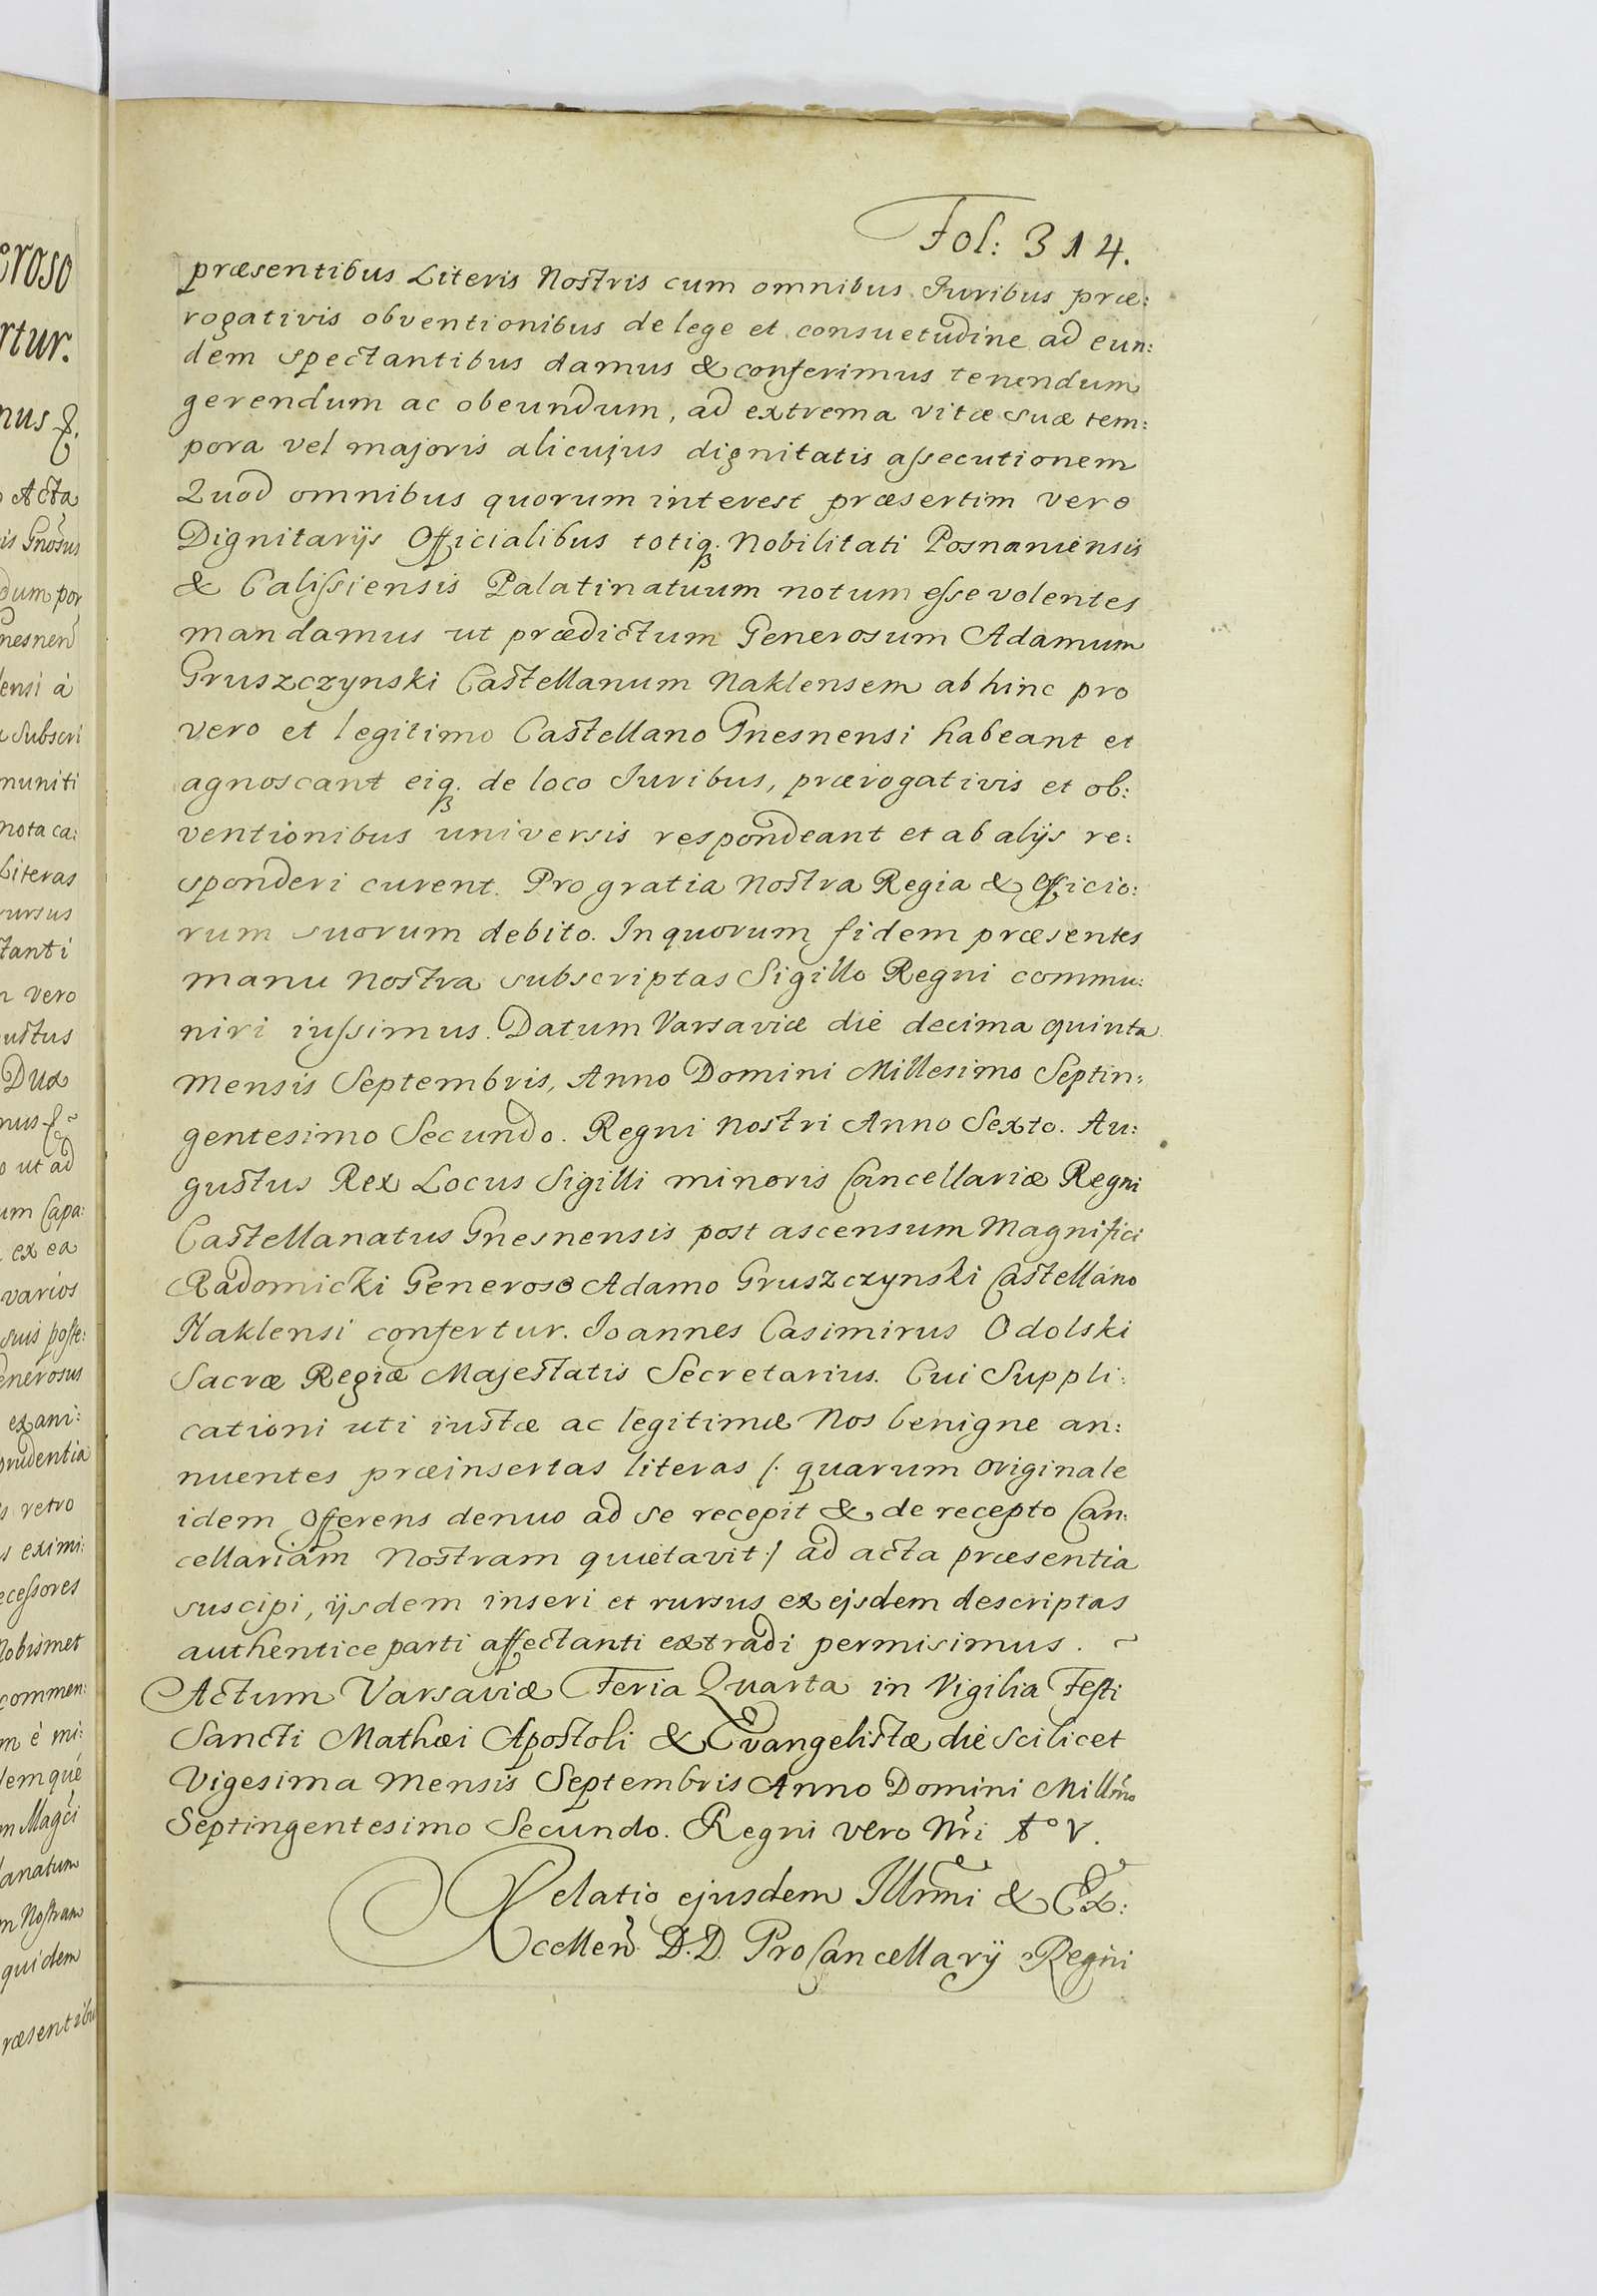 Fol: 314.
præsentibus Literis Nostris cum omnibus Juribus præ:
rogativis obventionibus de lege et consuetudine ad eun:
dem spectantibus damus & conferimus tenendum
gerendum ac obeundum, ad extrema vitæ suæ tem:
pora vel majoris alicujus dignitatis assecutionem
Quod omnibus quorum interest præsertim vero
Dignitarijs Officialibus totiq. Nobilitati Posnaniensis
& Calissiensis Palatinatuum notum esse volentes
mandamus ut prædictum Generosum Adamum
Gruszczynski Castellanum Naklensem abhinc pro
vero et legitimo Castellano Gnesnensi habeant et
agnoscant eiq. de loco Juribus, prærogativis et ob:
ventionibus universis respondeant et ab alijs re:
sponderi curent. Pro gratia nostra Regia & Officio:
rum suorum debito. In quorum fidem præsentes
manu nostra subscriptas Sigillo Regni commu:
niri iussimus. Datum Varsaviæ die decima quinta
Mensis Septembris, Anno Domini Millesimo Septin:
gentesimo Secundo. Regni nostri Anno Sexto. Au:
gustus Rex Locus Sigilli minoris Cancellariæ Regni
Castellanatus Gnesnensis post ascensum Magnifici
Radomicki Generoso Adamo Gruszczynski Castellano
Naklensi confertur. Joannes Casimirus Odolski
Sacræ Regiæ Majestatis Secretarius. Cui Suppli:
cationi uti iustæ ac legitimæ Nos benigne an:
nuentes præinsertas literas /: quarum originale
idem Offerens denuo ad se recepit & de recepto Can:
cellariam Nostram quietavit :/ ad acta præsentia
suscipi, ijsdem inseri et rursus ex ejsdem descriptas
authentice parti affectanti extradi permisimus. ~
Actum Varsaviæ Feria Quarta in Vigilia Festi
Sancti Mathæi Apostoli & Evangelistæ die scilicet
Vigesima Mensis Septembris Anno Domini Millm̃o
Septingentesimo Secundo. Regni vero Nr̃i Aº V.
Relatio ejusdem Illrm̃i & Ex:
cellen̄. D.D. ProCancellarij Regni